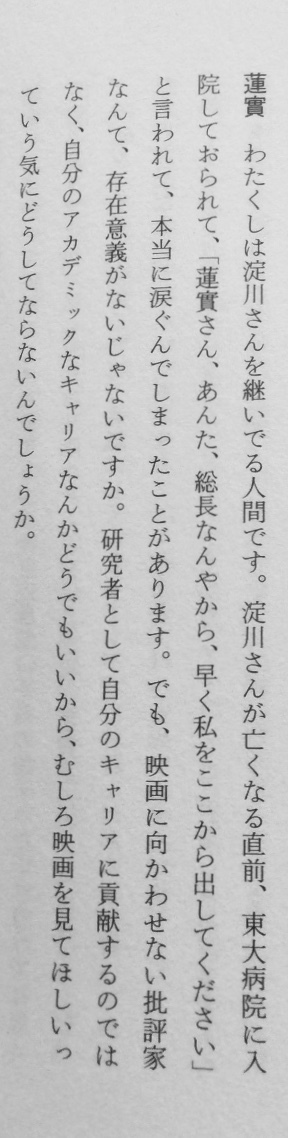 蓮實　わたくしは淀川さんを継いでる人間です。淀川さんが亡くなる直前、東大病院に入
院しておられて、「蓮實さん、あんた、総長なんやから、早く私をここから出してください」
と言われて、本当に涙ぐんでしまったことがあります。でも、映画に向かわせない批評家
なんて、存在意義がないじゃないですか。研究者として自分のキャリアに貢献するのでは
なく、自分のアカデミックなキャリアなんかどうでもいいから、むしろ映画を見てほしいっ
ていう気にどうしてならないんでしょうか。